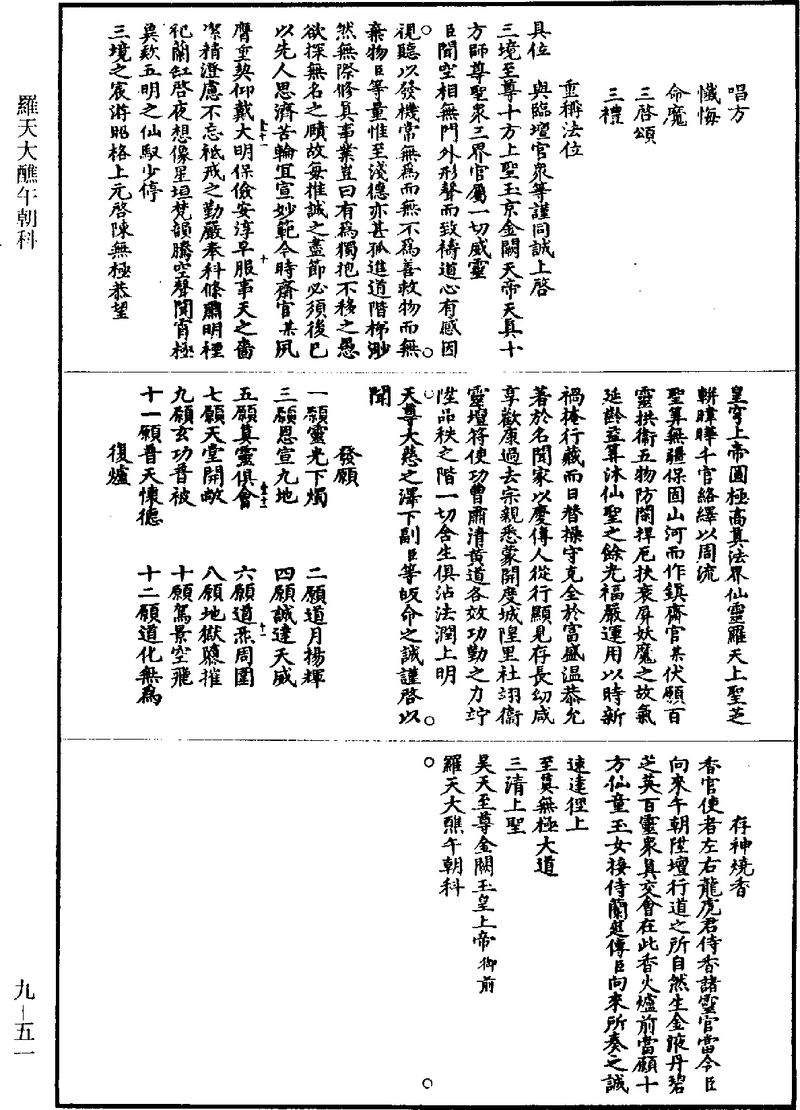 唱方
懺悔
命魔
三啓頌
三禮
重稱法位
具位　與臨壇官衆等謹同誠上啓
三境至尊十方上聖玉京金闕天帝天真十
方師尊聖衆三界官屬一切威靈
臣聞空相無門外形聲而致禱道心有感因
視聽以發機常無爲而無不爲善救物而無
棄物臣等量惟至淺德亦甚孤進道階梯渺
然無際修真事業豈曰有爲獨抱不移之愚
欲探無名之賾故每推誠之盡節必須後己
以先人思濟苦輪宜宣妙範今時齋官某夙
膺重契仰戴大明保儉安淳早服事天之嗇
潔精澄慮不忘祗戒之勤嚴奉科條肅明禋
祀蘭缸啓夜想像星垣梵韻騰空聲聞宵極
冀欵五明之仙馭少停
三境之宸斿昭格上元啓陳無極恭望
皇穹上帝圓極高真法界仙靈羅天上聖芝
軿暐曄千官絡繹以周流
聖筭無疆保固山河而作鎮齋官某伏願百
靈拱衛五物防閑捍厄扶衰屏妖魔之故氣
延齡益筭沐仙聖之餘光福嚴運用以時新
禍掩行藏而日替操守克全於富盛溫恭允
著於名聞家以慶傳人從行顯見存長幼咸
享歡康過去宗親悉蒙開度城隍里社翊衛
靈壇符使功曹肅清黃道各效功勤之力竚
陞品秩之階一切含生俱沾法潤上明
天尊大慈之澤下副臣等皈命之誠謹啓以
聞
發願
一願靈光下燭　二願道月揚輝
三願恩宣九地　四願誠達天威
五願真靈俱會　六願道炁周圍
七願天堂開敞　八願地獄隳摧
九願玄功普被　十願駕景空飛
十一願普天懷德　十二願道化無爲
復爐
存神燒香
香官使者左右龍虎君侍香諸靈官當令臣
向來午朝陞壇行道之所自然生金液丹碧
芝英百靈衆真交會在此香火爐前當願十
方仙童玉女接侍蘭煙傳臣向來所奏之誠
速達徑上
至真無極大道
三清上聖
昊天至尊金闕玉皇上帝御前
羅天大醮午朝科
羅天大醮午朝科
九－五一